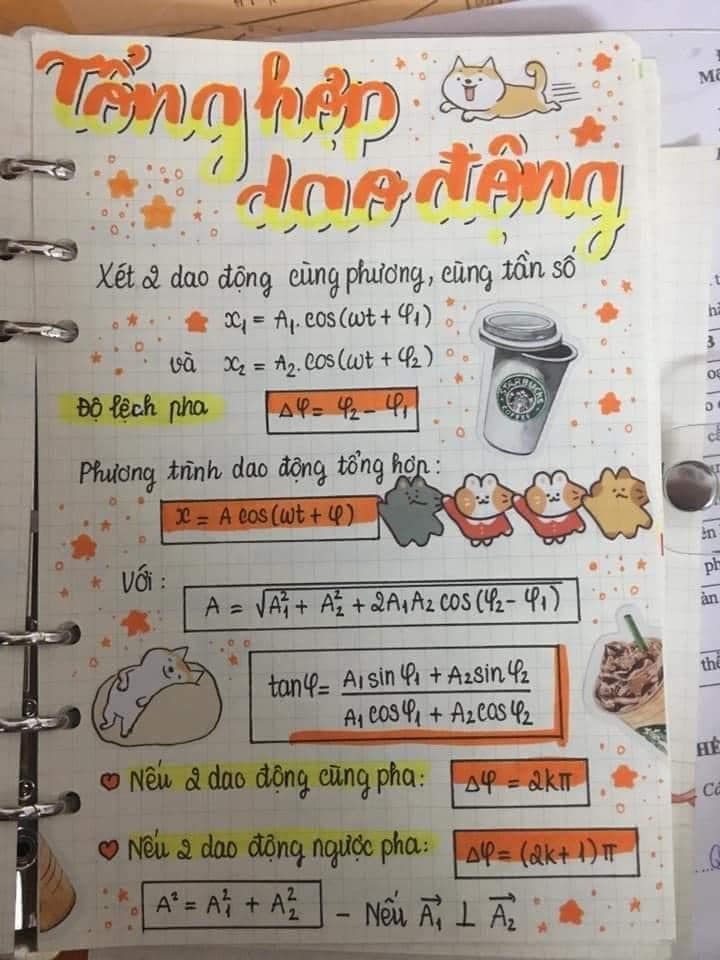 Tổng hợp
dao động
Xét 2 dao động cùng phương, cùng tần số
x₁ = A₁. cos(ωt + φ₁)
và x₂ = A₂. cos(ωt + φ₂)
STARBUCKS
COFFEE
Độ lệch pha Δφ = φ₂ - φ₁
Phương trình dao động tổng hợp:
x = A cos(ωt + φ)
Với:
A = √(A₁² + A₂² + 2A₁A₂ cos(φ₂ - φ₁))
tanφ = (A₁ sin φ₁ + A₂ sin φ₂)/(A₁ cos φ₁ + A₂ cos φ₂)
Nếu 2 dao động cùng pha: Δφ = 2kπ
Nếu 2 dao động ngược pha: Δφ = (2k+1)π
A² = A₁² + A₂² - Nếu A₁⃗ ⊥ A₂⃗